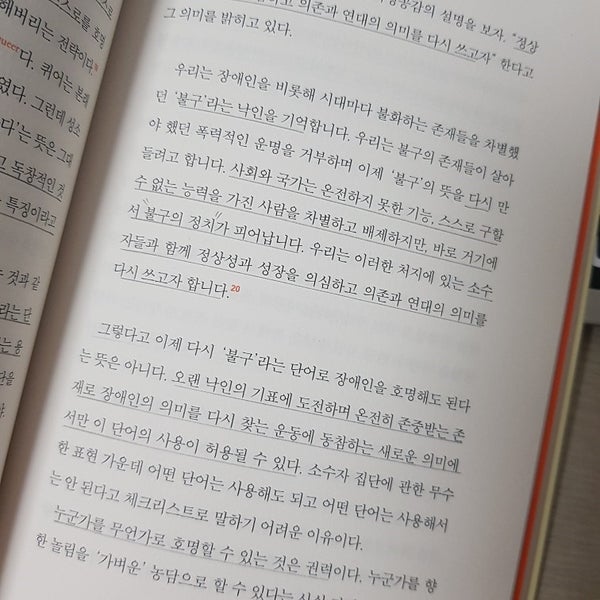 스로를 호명
해버리는 전략이다.
다. 퀴어는 본래
였다. 그런데 성소
다'는 뜻은 그대
독창적인 것
특징이라고
것과 같
라는 단
는 용
단을
하고 의존과 연대의 의미를 다시 쓰고자" 한다고
공감의 설명을 보자. "정상
그 의미를 밝히고 있다.
우리는 장애인을 비롯해 시대마다 불화하는 존재들을 차별했
던 '불구'라는 낙인을 기억합니다. 우리는 불구의 존재들이 살아
야 했던 폭력적인 운명을 거부하며 이제 '불구'의 뜻을 다시 만
들려고 합니다. 사회와 국가는 온전하지 못한 기능, 스스로 구할
수 없는 능력을 가진 사람을 차별하고 배제하지만, 바로 거기에
서 "불구의 정치"가 피어납니다. 우리는 이러한 처지에 있는 소수
자들과 함께 정상성과 성장을 의심하고 의존과 연대의 의미를
다시 쓰고자 합니다.20
그렇다고 이제 다시 '불구'라는 단어로 장애인을 호명해도 된다
는 뜻은 아니다. 오랜 낙인의 기표에 도전하며 온전히 존중받는 존
재로 장애인의 의미를 다시 찾는 운동에 동참하는 새로운 의미에
서만 이 단어의 사용이 허용될 수 있다. 소수자 집단에 관한 무수
한 표현 가운데 어떤 단어는 사용해도 되고 어떤 단어는 사용해서
는 안 된다고 체크리스트로 말하기 어려운 이유이다.
누군가를 무언가로 호명할 수 있는 것은 권력이다. 누군가를 향
한 놀림을 '가벼운' 농담으로 할 수 있다는 사실